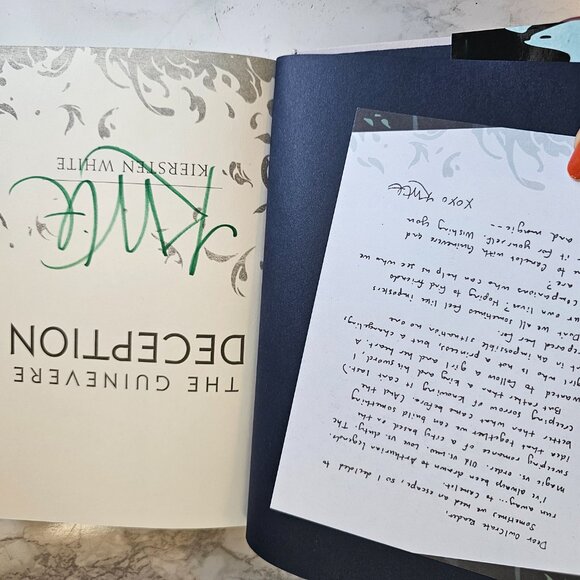 THE GUINEVERE
DECEPTION
KIERSTEN WHITE
Dear OwlCrate Reader,
Sometimes we need an escape, so I decided to
run away... to Camelot.
I've always been drawn to Arthurian legends.
Magic vs. order. Old love vs. duty. The
sweeping romance of a city based on the
idea that together we can build something
better than what came before. (And the
creeping sorrow of knowing it can't last.)
But rather than a king and his sword, I
wanted to follow a girl and her heart. A
girl who is not a princess, but a changeling,
in an impossible situation no one
prepared her for.
Don't we all sometimes feel like imposters
our own lives? Hoping to find friends
companions who can help us see who we
are?
to Camelot with Guinevere and
it for yourself. Wishing you
and magic--
xoxo